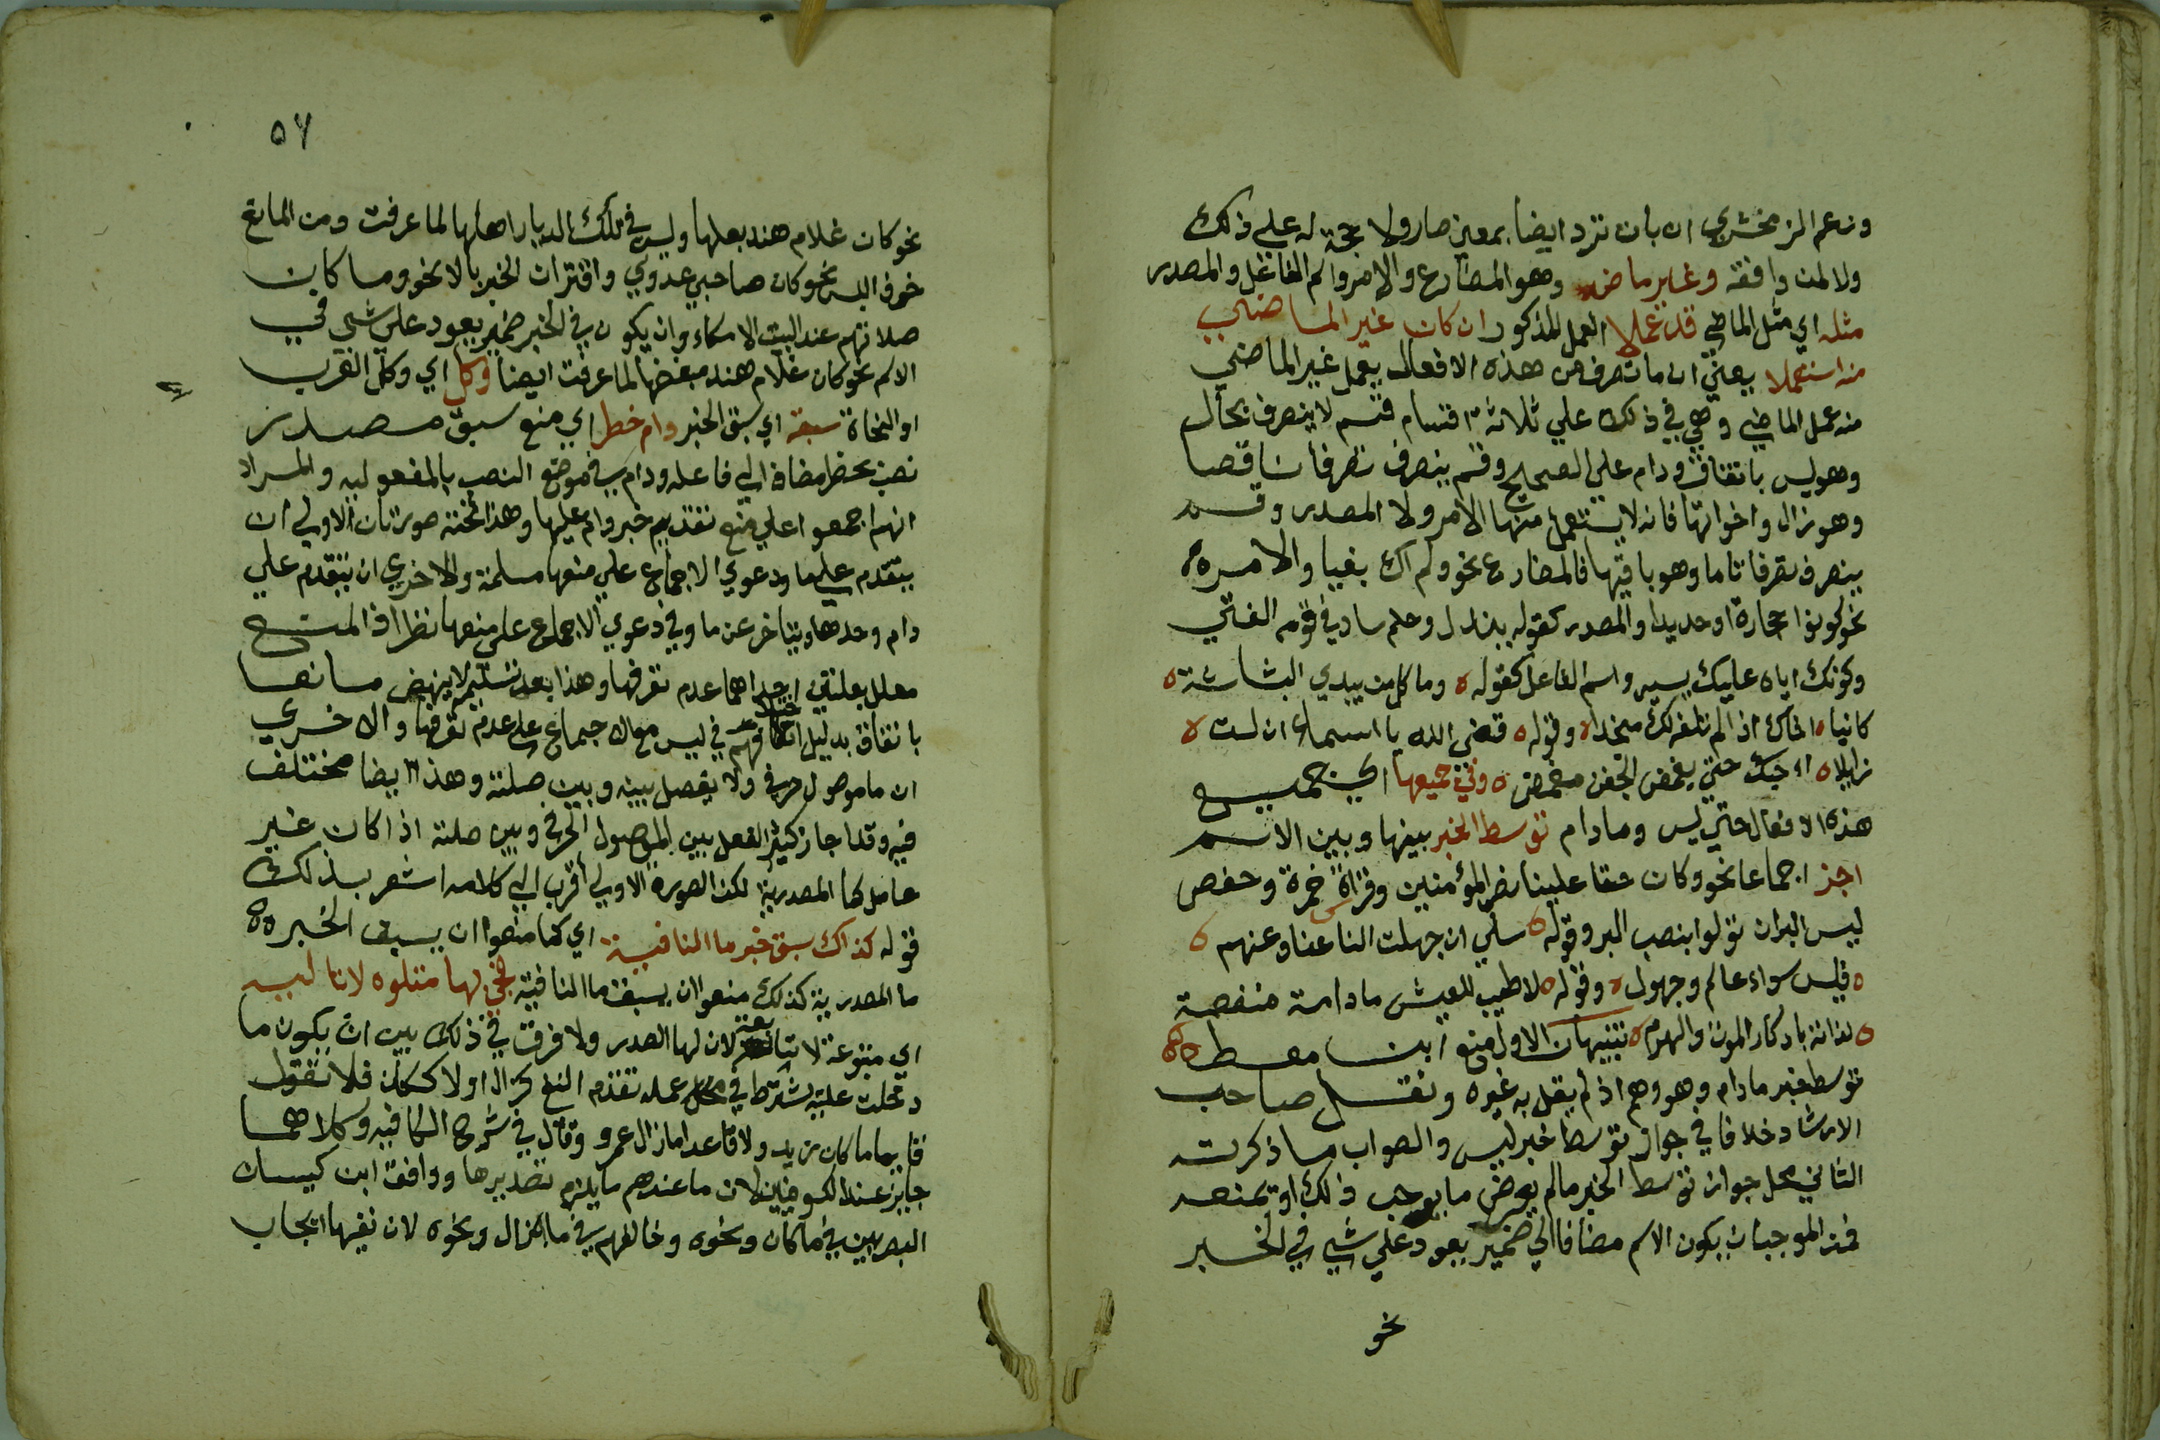 وزعم الزمخشري ان بات ترد ايضا بمعنى صار ولا حجة له على ذلك
ولا لمن وافقه وغير ماض وهو المضارع والامر واسم الفاعل والمصدر
مثله اي مثل الماضي قد عملا العمل المذكور ان كان غير الماضي
منه استعملا يعني ان ما تصرف من هذه الافعال يعمل غير الماضي
منه عمل الماضي وهي في ذلك علي ثلاثة اقسام قسم لا يتصرف بحال
وهو ليس باتفاق ودام علي الصحيح وقسم يتصرف تصرفا ناقصا
وهو زال واخواتها فانه لا يستعمل منها الامر ولا المصدر وقسم
يتصرف تصرفا تاما وهو باقيها فالمضارع نحو ولم اك بغيا والامر
نحو كونوا حجارة او حديدا والمصدر كقوله ببذل وحلم ساد في قومه الفتي
وكونك اياه عليك يسير واسم الفاعل كقوله وما كل من يبدي البشاشة
كاينا اخاك اذا لم تلفه لك منجدا وقوله قضي الله يا اسماء ان لست
زايلا احبك حتي يغمض الجفن مغمض وفي جميعها اي جميع
هذه الافعال حتي ليس وما دام توسط الخبر بينها وبين الاسم
اجز اجماعا نحو وكان حقا علينا نصر المؤمنين وقراة حمزة وحفص
ليس البر ان تولوا بنصب البر وقوله سلي ان جهلت الناس عنا وعنهم
فليس سواء عالم وجهول وقوله لا طيب للعيش ما دامت منغصة
لذاته بادكار الموت والهرم تنبيهان الاول منع ابن معط
توسط خبر ما دام وهو وهم اذ لم يقل به غيره ونقل صاحب
الارشاد خلافا في جواز توسط خبر ليس والصواب ما ذكرته
الثاني محل جواز توسط الخبر ما لم يعرض ما يوجب ذلك او يمنعه
فمن الموجبات يكون الاسم مضافا الي ضمير يعود علي شي في الخبر
نحو
٥٦
نحو كان غلام هند بعلها وليس في تلك الديار اهلها لما عرفت ومن المانع
خوف اللبس نحو كان صاحبي عدوي واقتران الخبر بالا نحو وما كان
صلاتهم عند البيت الا مكاء وان يكون في الخبر ضمير يعود على شي في
الاسم نحو كان غلام هند مبغضها لما عرفت ايضا وكل اي وكل العرب
او النحاة سبقه اي سبق الخبر دام حظر اي منع سبق مصدر
نصب بحظر مضاف الي فاعله ودام في موضع النصب بالمفعولية والمراد
انهم اجمعوا علي منع تقديم خبر دام عليها وهذا تحته صورتان الاولي ان
يتقدم على ما ودعوي الاجماع علي منعها مسلمة والاخري ان يتقدم علي
دام وحدها ويتاخر عن ما وفي دعوي الاجماع على منعها نظر اذ المنع
معلل بعلتين احداهما عدم تصرفها وهذا بعد تسليمه لا ينهض مانعا
باتفاق بدليل اختلافهم في ليس مع الاجماع على عدم تصرفها والاخري
ان ما موصول حرفي ولا يفصل بينه وبين صلته وهذا ايضا مختلف
فيه وقد اجاز كثير الفصل بين الموصول الحرفي وبين صلته اذا كان غير
عامل كما المصدرية لكن الصورة الاولي اقرب الي كلامه اشعر بذلك
قوله كذاك سبق خبر ما النافية اي كما منعوا ان يسبق الخبر
ما المصدرية كذلك منعوا ان يسبق ما النافية فجئ بها متلوة لا تاليه
اي متبوعة لا تابعة لان لها الصدر ولا فرق في ذلك بين ان يكون ما
دخلت عليه يشترط في عمله تقدم النفي كزال اولا ككان فلا تقول
قايما ما كان زيد ولا قاعدا ما زال عمرو وقال في شرح الكافيه وكلاهما
جايز عند الكوفيين لان ما عندهم لا يلزم تصديرها ووافق ابن كيسان
البصريين في ما كان ونحوه وخالفهم في ما زال ونحوه لان نفيها ايجاب